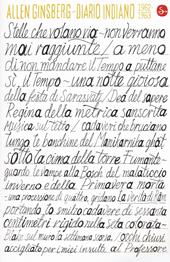 ALLEN GINSBERG - DIARIO INDIANO 1962 1963
Stelle che volano via - non verranno
mai raggiunte / a meno
di non mandare il Tempo a puttane
Sì, il Tempo - una notte gioiosa
della festa di Sarasvati, Dea del sapere
Regina della metrica sanscrita
Musica sul tetto / cadaveri che bruciano
lungo le banchine del Manikarnika ghat
sotto la cima della torre fumante
quando le vampe alla Bosch del malaticcio
inverno e della Primavera morta
una processione di quattro, gridano La verità di Ram
portando lo smilzo cadavere di sessanta
centimetri rigido nella seta colorata
sul muro la settimana scorsa, Pochi chiusi
accigliato per i miei insulti al Professore